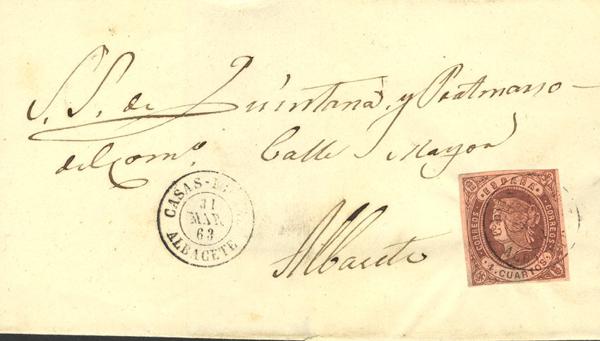 S.S. de Quintana y
del Com.º Calle Mayor
Albacete
CASAS-
31
MAR.
63
ALBACETE
ESPAÑA
CORREOS
CORREOS
4 CUARTOS